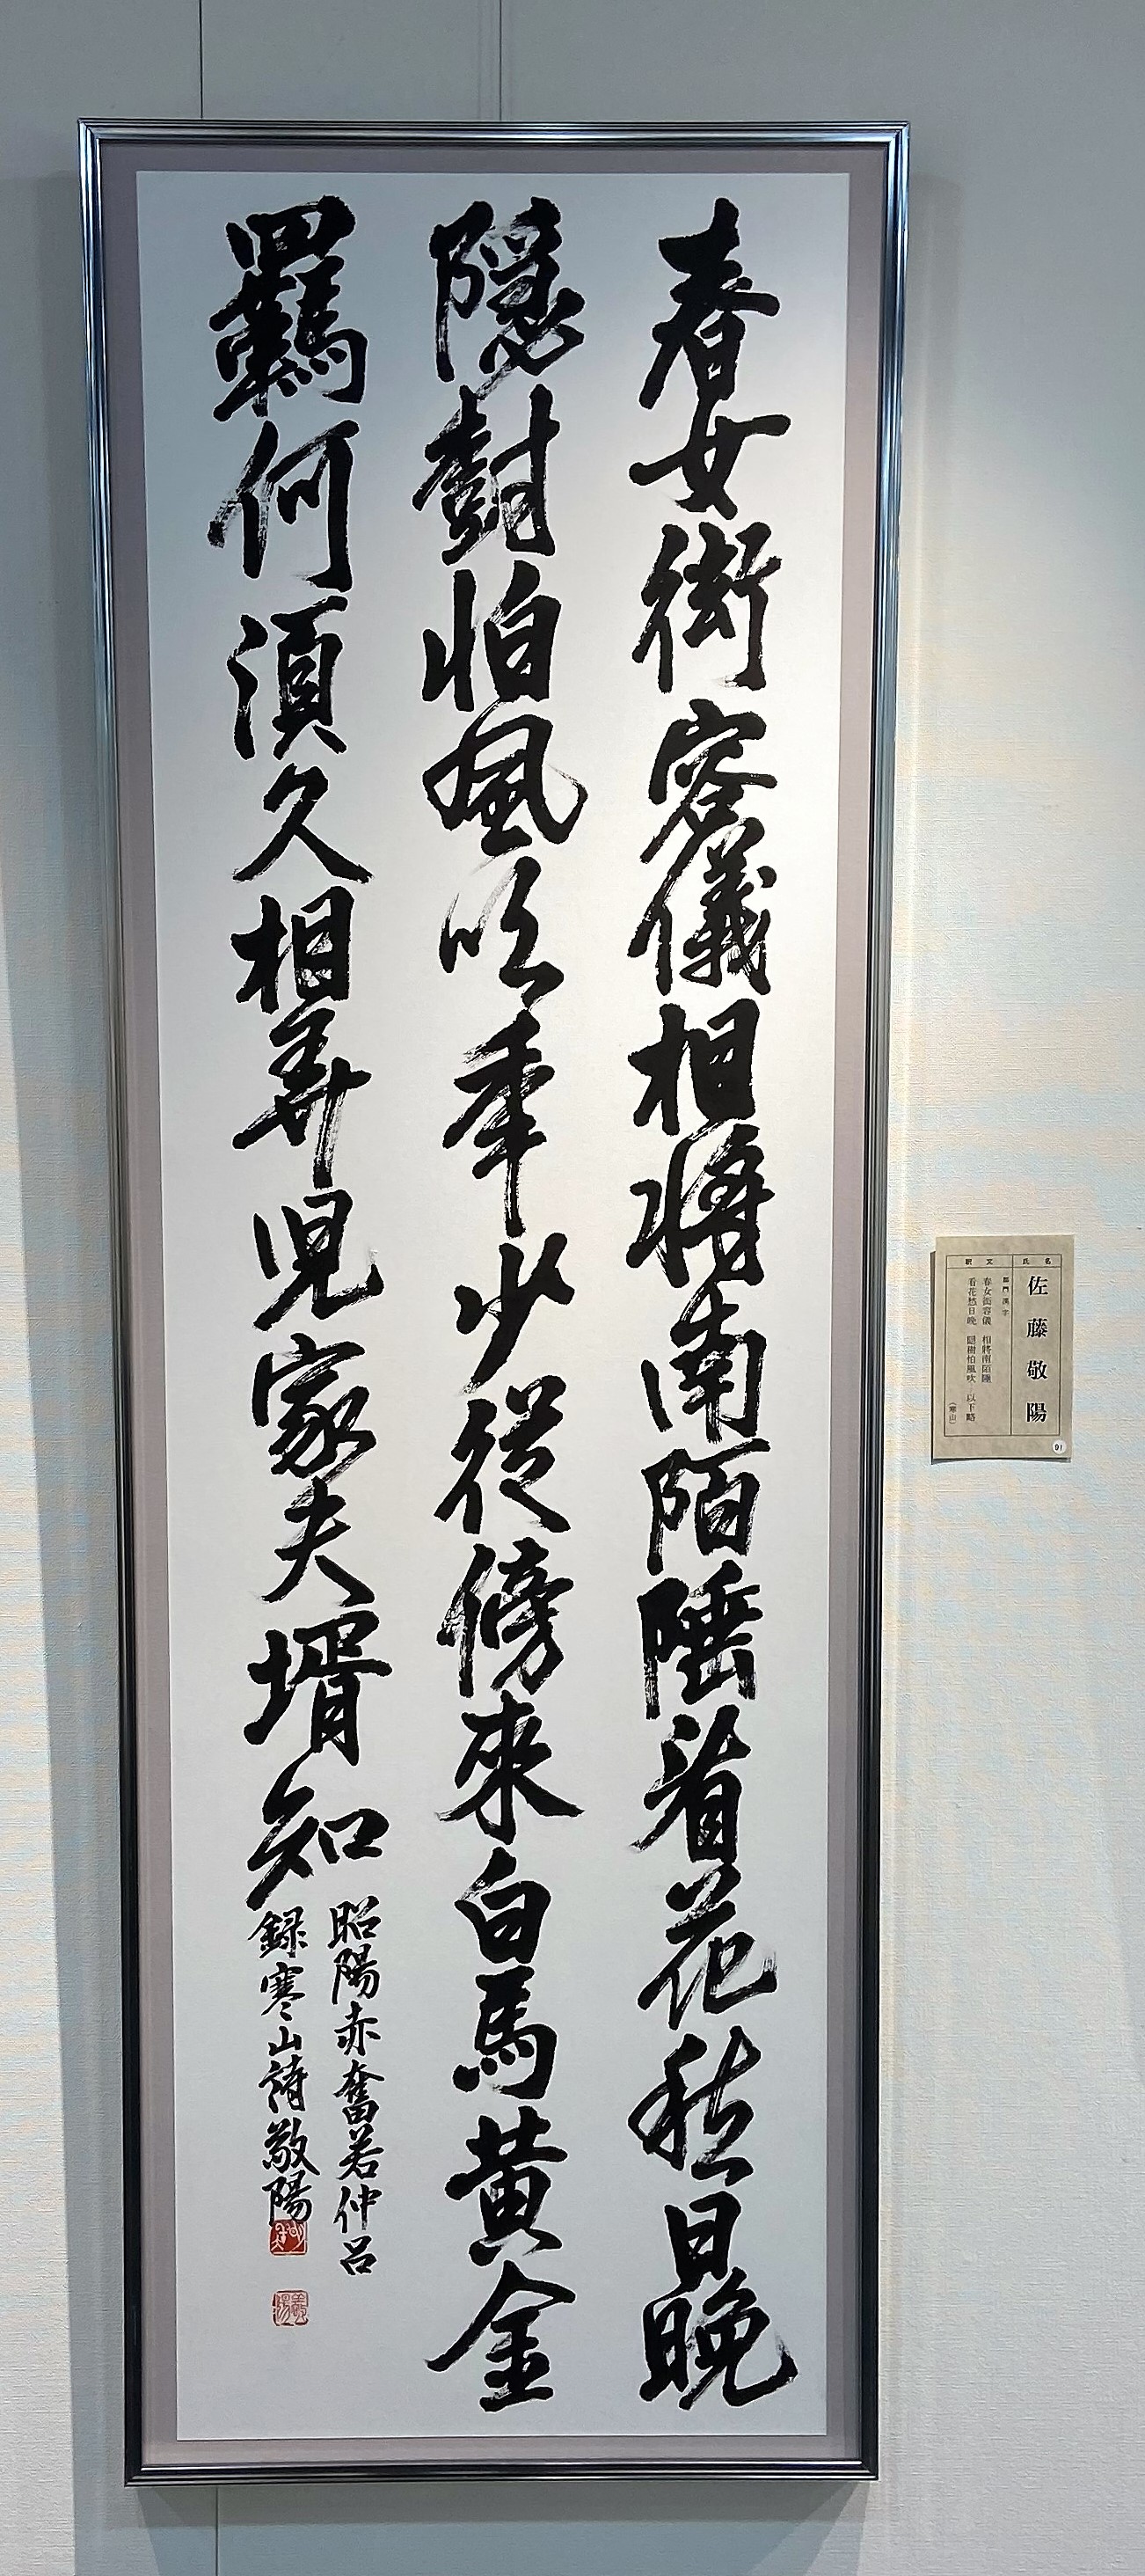 春女衒容儀相將南陌陲看花愁日晚
隱樹怕風吹年少從傍來白馬黄金
羈何須久相弄児家夫壻知
昭陽赤奮若仲呂
録寒山詩敬陽
氏名
佐藤敬陽
釈文
部門 漢字
春女衒容儀 相將南陌陲
看花愁日晚 隠樹怕風吹 以下略
(寒山)
91